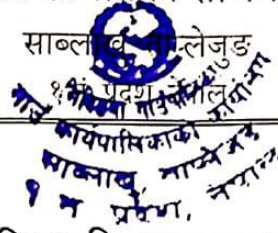 साब्लाखु, ताप्लेजुङ
१ नं प्रदेश, नेपाल
गाउँपालिका
गाउँ कार्यपालिकाको कार्यालय
साब्लाखु, ताप्लेजुङ
१ नं प्रदेश, नेपाल